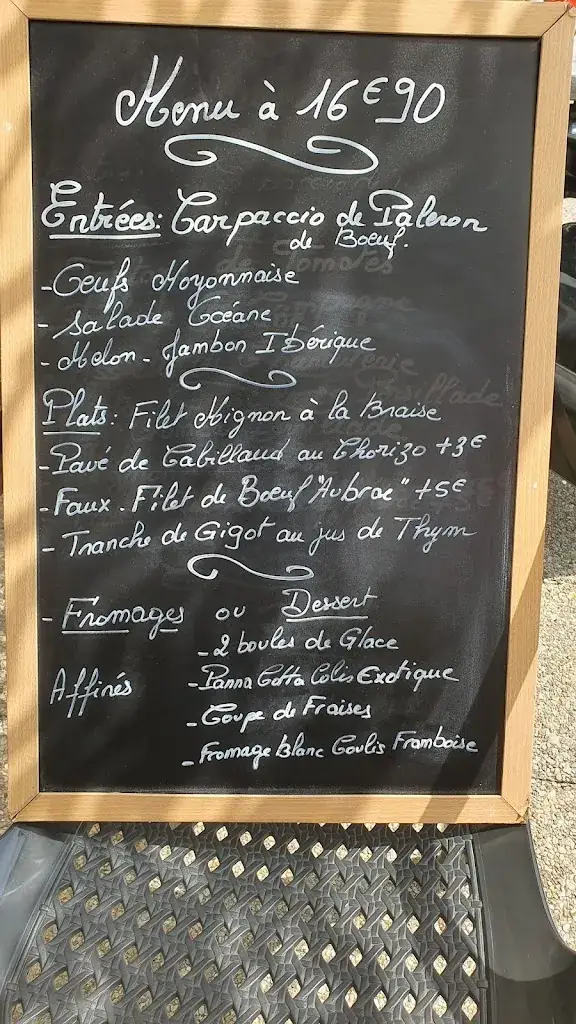 Menu à 16€90
Entrées: Carpaccio de Paleron
de Boeuf.
- Oeufs Mayonnaise
- Salade Océane
- Melon - Jambon Ibérique
Plats: Filet Mignon à la Braise
- Pavé de Cabillaud au Chorizo +3€
- Faux. Filet de Boeuf "Aubrac" +5€
- Tranche de Gigot au jus de Thym
- Fromages ou Dessert
- 2 boules de Glace
Affinés
- Panna Cotta Colis Exotique
- Coupe de Fraises
- Fromage Blanc Coulis Framboise